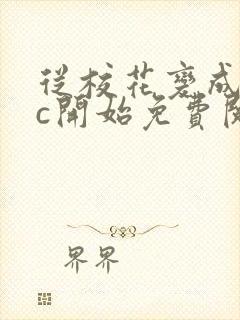 從校花變成
c開始免費閱
界界